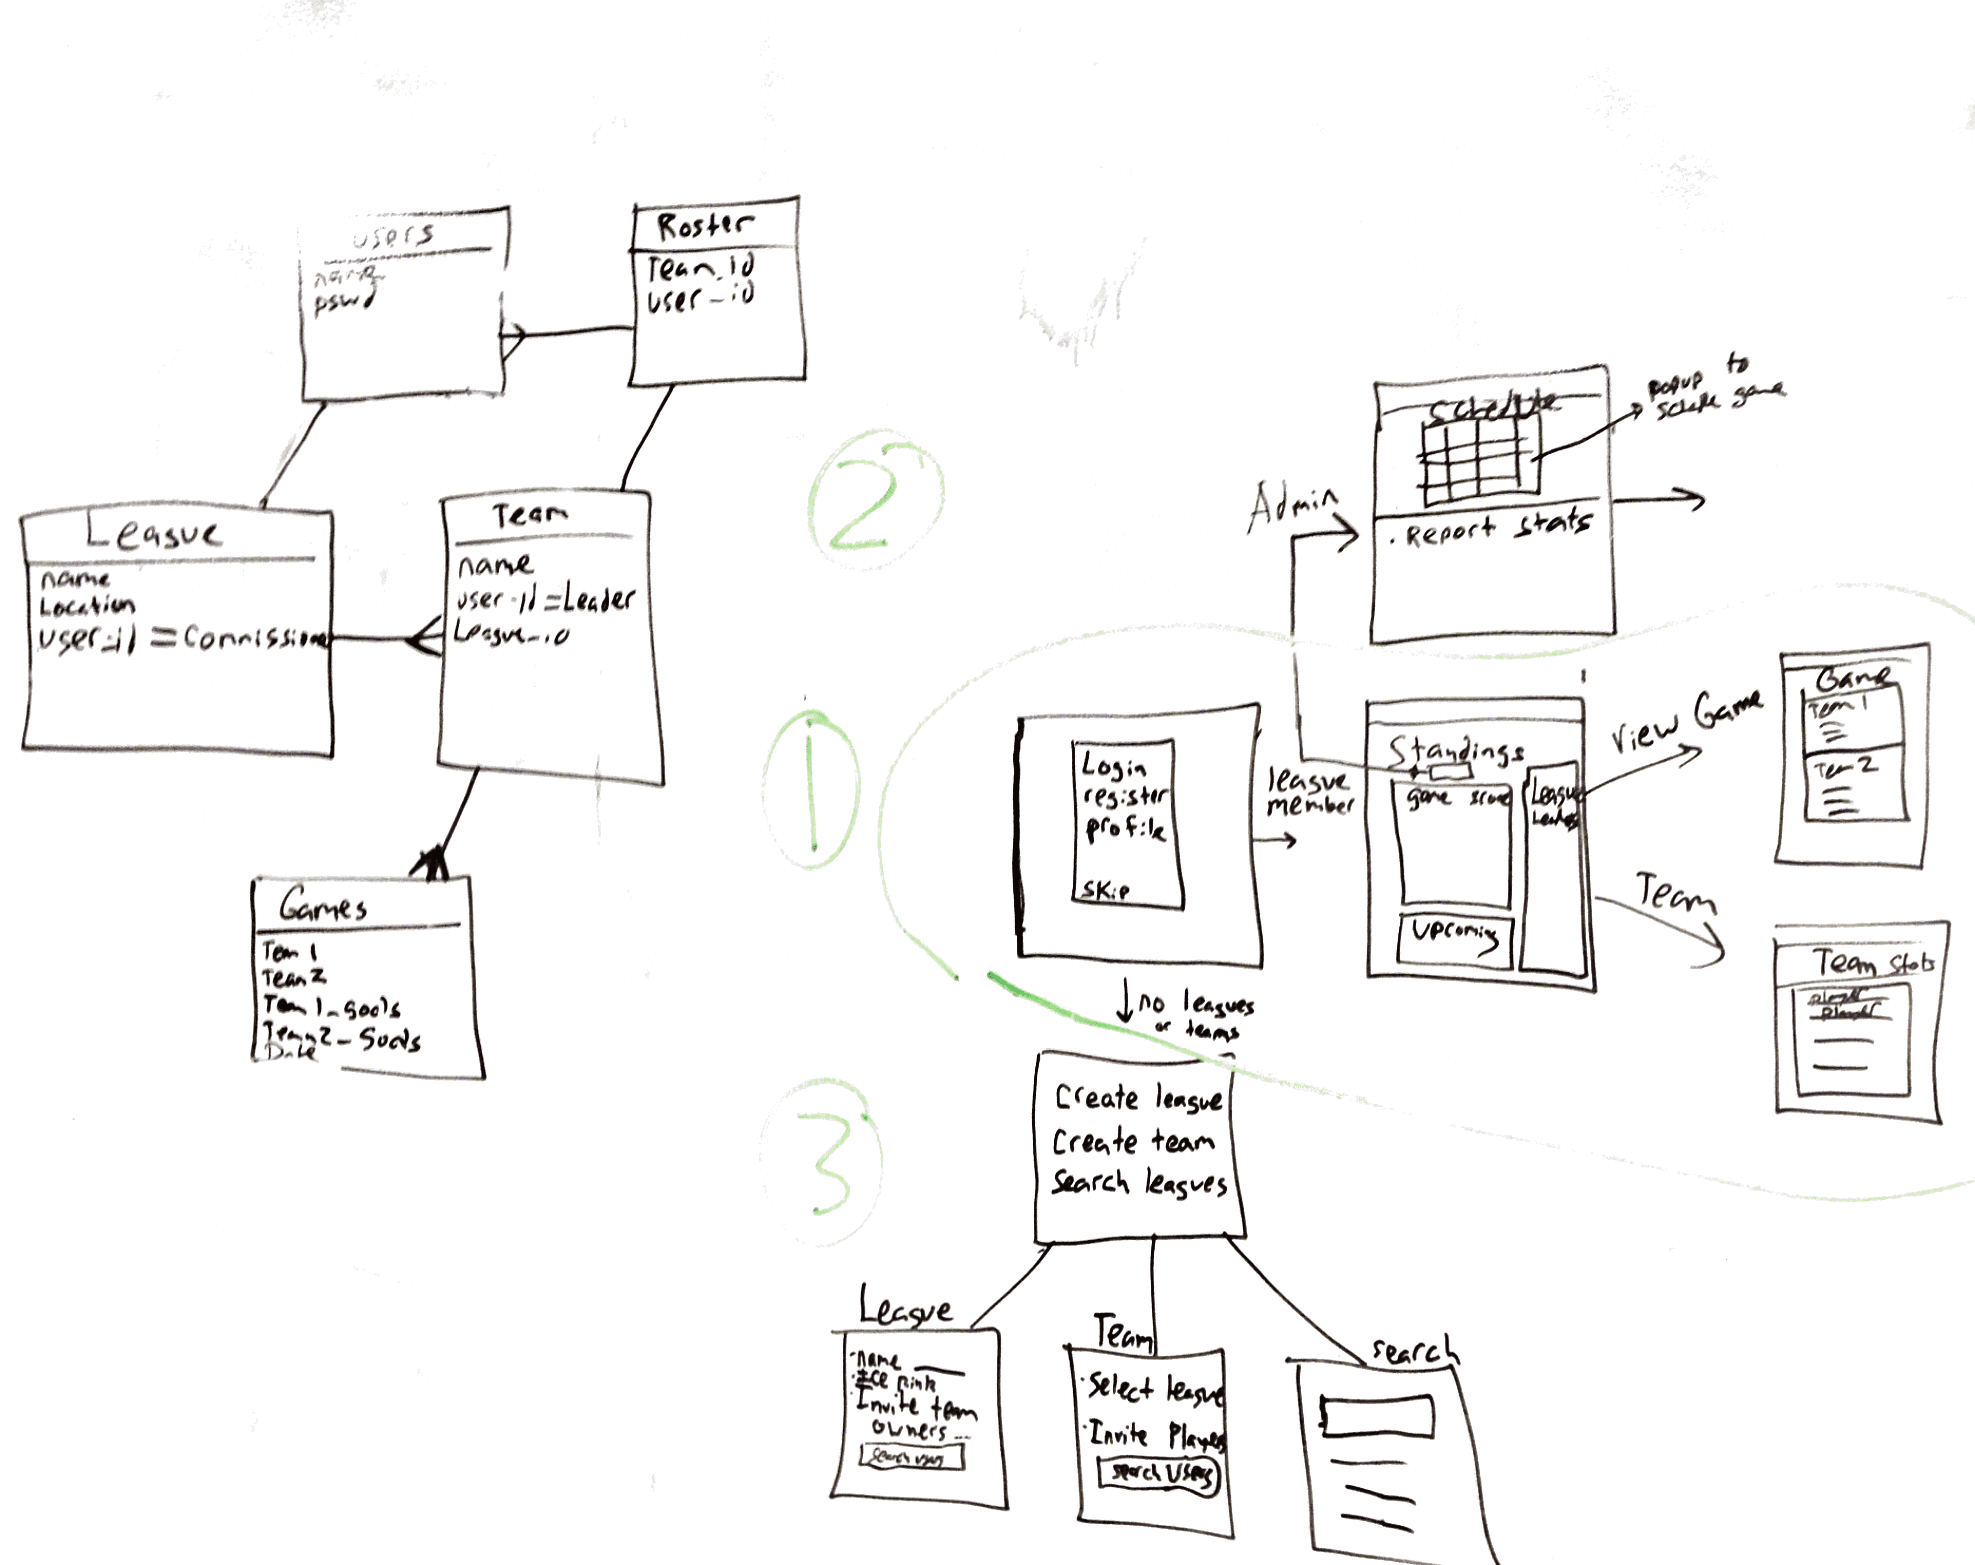 users
name
pswd
Roster
Team_id
user_id
League
name
Location
user_id = Commissione
Team
name
user_id = Leader
League_id
Games
Team 1
Team 2
Team 1_goals
Team 2_Goals
Date
2
1
3
Admin
Schedule
popup to
game
. Report stats
Login
register
profile
Skip
league
member
Standings
game score
League
Leaders
Upcoming
View Game
Game
Team 1
Team 2
Team
Team stats
no leagues
or teams
Create league
Create team
Search leagues
League
· name
· Ice rink
· Invite team
owners
search users
Team
· Select league
· Invite Players
search Users
search